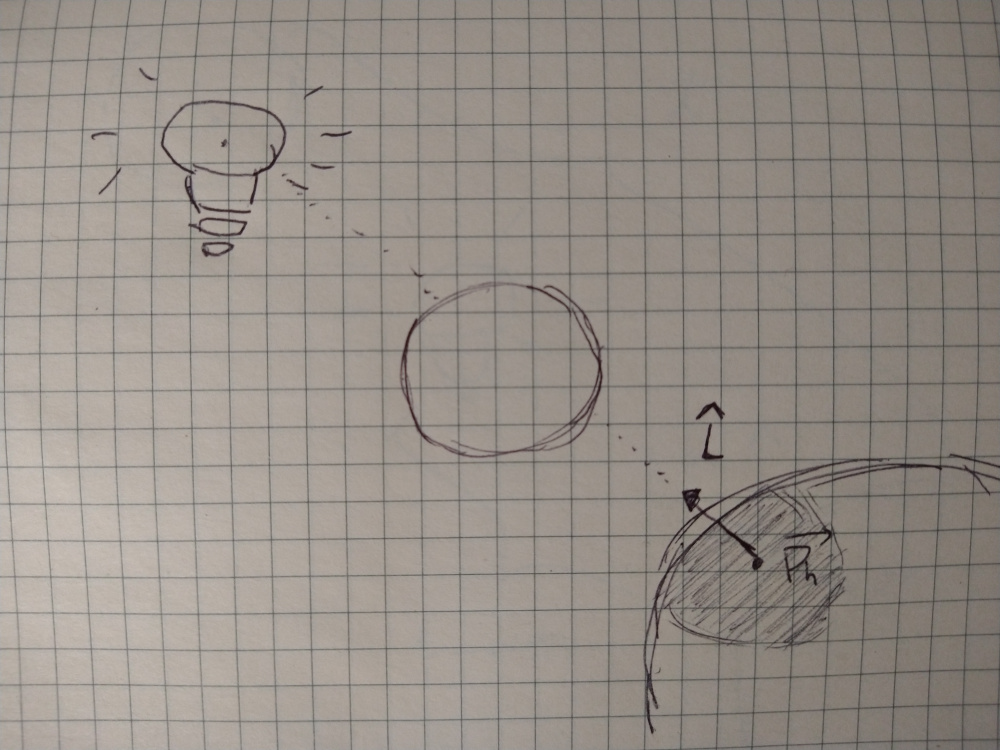 L̂
P⃗h